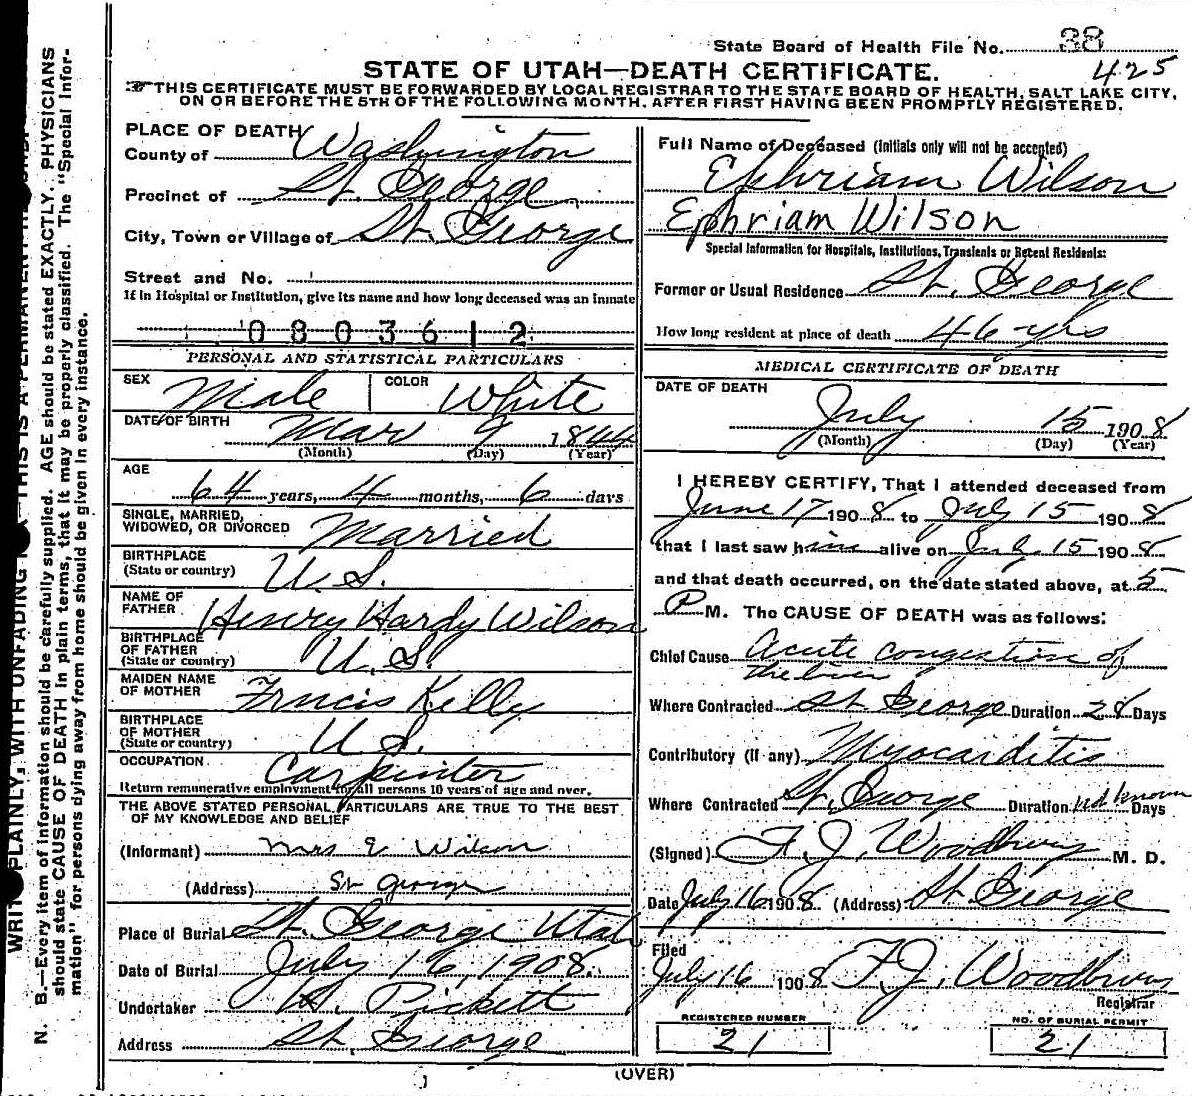 State Board of Health File No. 38
425
STATE OF UTAH—DEATH CERTIFICATE.
THIS CERTIFICATE MUST BE FORWARDED BY LOCAL REGISTRAR TO THE STATE BOARD OF HEALTH, SALT LAKE CITY,
ON OR BEFORE THE 5TH OF THE FOLLOWING MONTH, AFTER FIRST HAVING BEEN PROMPTLY REGISTERED.
PLACE OF DEATH
County of Washington
Precinct of St. George
City, Town or Village of St. George
Street and No.
If in Hospital or Institution, give its name and how long deceased was an inmate
0803612
PERSONAL AND STATISTICAL PARTICULARS
SEX Male COLOR White
DATE OF BIRTH Mar 9 1844
(Month) (Day) (Year)
AGE
64 years, 4 months, 6 days
SINGLE, MARRIED,
WIDOWED, OR DIVORCED Married
BIRTHPLACE
(State or country) U.S.
NAME OF
FATHER Henry Hardy Wilson
BIRTHPLACE
OF FATHER
(State or country) U.S.
MAIDEN NAME
OF MOTHER Francis Kelly
BIRTHPLACE
OF MOTHER
(State or country) U.S.
OCCUPATION Carpinter
Return remunerative employment for all persons 10 years of age and over.
THE ABOVE STATED PERSONAL PARTICULARS ARE TRUE TO THE BEST
OF MY KNOWLEDGE AND BELIEF
(Informant) Mrs E Wilson
(Address) St George
Place of Burial St. George Utah
Date of Burial July 16, 1908.
Undertaker Pickett
Address St. George
Full Name of Deceased (Initials only will not be accepted)
Ephriam Wilson
Ephriam Wilson
Special Information for Hospitals, Institutions, Transients or Recent Residents:
Former or Usual Residence St. George
How long resident at place of death 46 yrs
MEDICAL CERTIFICATE OF DEATH
DATE OF DEATH
July 15 1908
(Month) (Day) (Year)
I HEREBY CERTIFY, That I attended deceased from
June 17 1908 to July 15 1908
that I last saw him alive on July 15 1908
and that death occurred, on the date stated above, at 5
P M. The CAUSE OF DEATH was as follows:
Chief Cause Acute congestion of
the liver
Where Contracted St. George Duration 28 Days
Contributory (if any) Myocarditis
Where Contracted St. George Duration not known Days
(Signed) F. J. Woodbury M. D.
Date July 16 1908 (Address) St. George
Filed
July 16 1908 F. J. Woodbury
Registrar
REGISTERED NUMBER
21
NO. OF BURIAL PERMIT
21
(OVER)
N. B.—Every item of information should be carefully supplied. AGE should be stated EXACTLY. PHYSICIANS
should state CAUSE OF DEATH in plain terms, that it may be properly classified. The "Special Infor-
mation" for persons dying away from home should be given in every instance.
PLAINLY, WITH UNFADING
THIS IS A PERMANENT